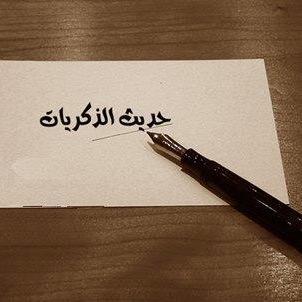 حديث الذكريات